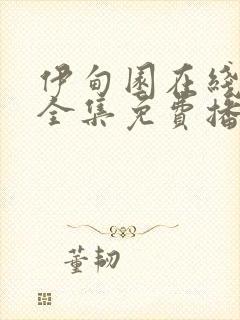 伊甸园在线
全集免费播
董韧